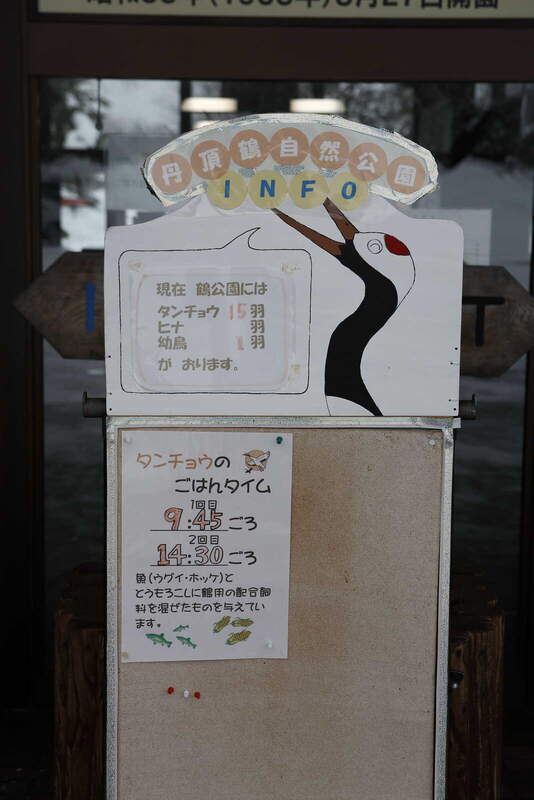 昭和33年(1958年)8月27日開園
丹頂鶴自然公園
INFO
現在 鶴公園には
タンチョウ 15羽
ヒナ 羽
幼鳥 1羽
が おります。
タンチョウの
ごはんタイム
1回目
9:45ごろ
2回目
14:30ごろ
魚(ウグイ・ホッケ)と
とうもろこしに鶴用の配合飼
料を混ぜたものを与えてい
ます。